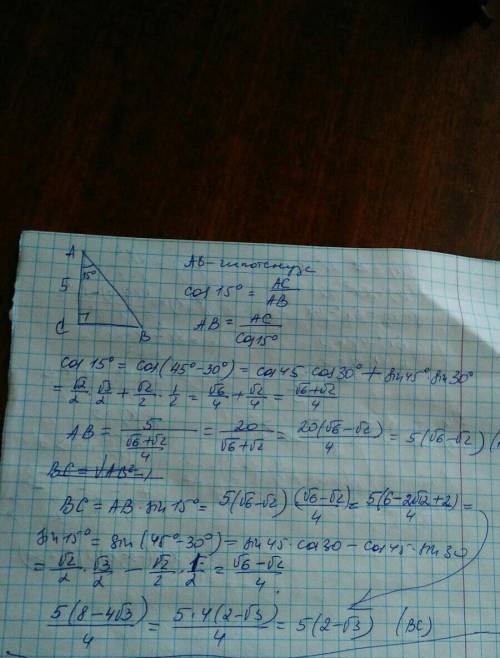 A
15°
5
C
B
AB - гипотенуза
cos 15° = AC/AB
AB = AC/cos 15°
cos 15° = cos(45° - 30°) = cos 45 cos 30° + sin 45° sin 30°
= √2/2 · √3/2 + √2/2 · 1/2 = √6/4 + √2/4 = (√6+√2)/4
AB = 5/((√6+√2)/4) = 20/(√6+√2) = 20(√6-√2)/4 = 5(√6-√2)
BC = √AB²-
BC = AB · sin 15° = 5(√6-√2) (√6-√2)/4 = 5(6-2√12+2)/4 =
sin 15° = sin (45° - 30°) = sin 45 · cos 30 - cos 45 · sin 30
= √2/2 · √3/2 - √2/2 · 1/2 = (√6-√2)/4.
5(8-4√3)/4 = 5·4(2-√3)/4 = 5(2-√3) (BC)